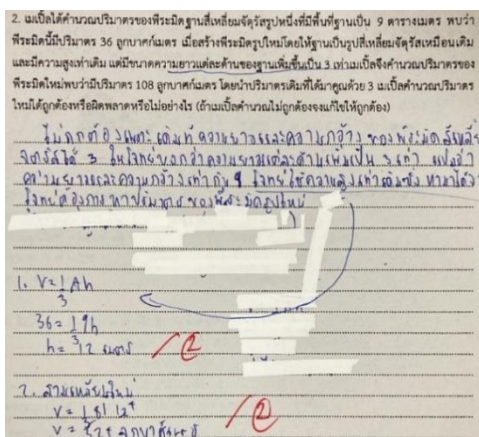 2. เมเปิ้ลได้คำนวณปริมาตรของพีระมิดฐานสี่เหลี่ยมจัตุรัสรูปหนึ่งที่มีพื้นที่ฐานเป็น 9 ตารางเมตร พบว่า
พีระมิดนี้มีปริมาตร 36 ลูกบาศก์เมตร เมื่อสร้างพีระมิดรูปใหม่โดยให้ฐานเป็นรูปสี่เหลี่ยมจัตุรัสเหมือนเดิม
และมีความสูงเท่าเดิม แต่มีขนาดความยาวแต่ละด้านของฐานเพิ่มขึ้นเป็น 3 เท่าเมเปิ้ลจึงคำนวณปริมาตรของ
พีระมิดใหม่พบว่ามีปริมาตร 108 ลูกบาศก์เมตร โดยนำปริมาตรเดิมที่ได้มาคูณด้วย 3 เมเปิ้ลคำนวณปริมาตร
ใหม่ได้ถูกต้องหรือผิดพลาดหรือไม่อย่างไร (ถ้าเมเปิ้ลคำนวณไม่ถูกต้องจงแก้ไขให้ถูกต้อง)
ไม่ถูกต้องเพราะเดิมทีความยาวและความกว้าง ของพีระมิดสี่เหลี่ยม
จัตุรัสได้ 3 ในโจทย์บอกว่าความยาวแต่ละด้านเพิ่มเป็น 3 เท่า แปลว่า
ความยาวและความกว้างเท่ากับ 9 โจทย์ใช้ความสูงเท่าเดิมซึ่ง หามาได้จาก
โจทย์ต้องการหาปริมาตรของพีระมิดรูปใหม่
1. V = 1/3 Ah
36 = 1/3 9h
h = 12 เมตร
2
2.
V = 1/3 81 12
V = 324 ลูกบาศก์เมตร
2